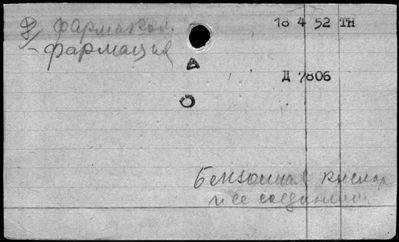 Фармакол.
18 4 52 ТН
-фармация
Д 7806
Бензойная кислота
и ее соединения